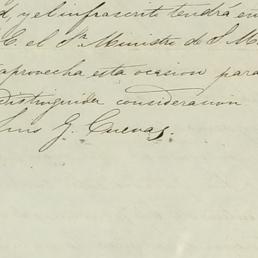 d, y el infrascrito tendrá en
C. el Sr. Ministro de S. M.
aprovecha esta ocasion para
distinguida consideracion
Luis G. Cuevas.